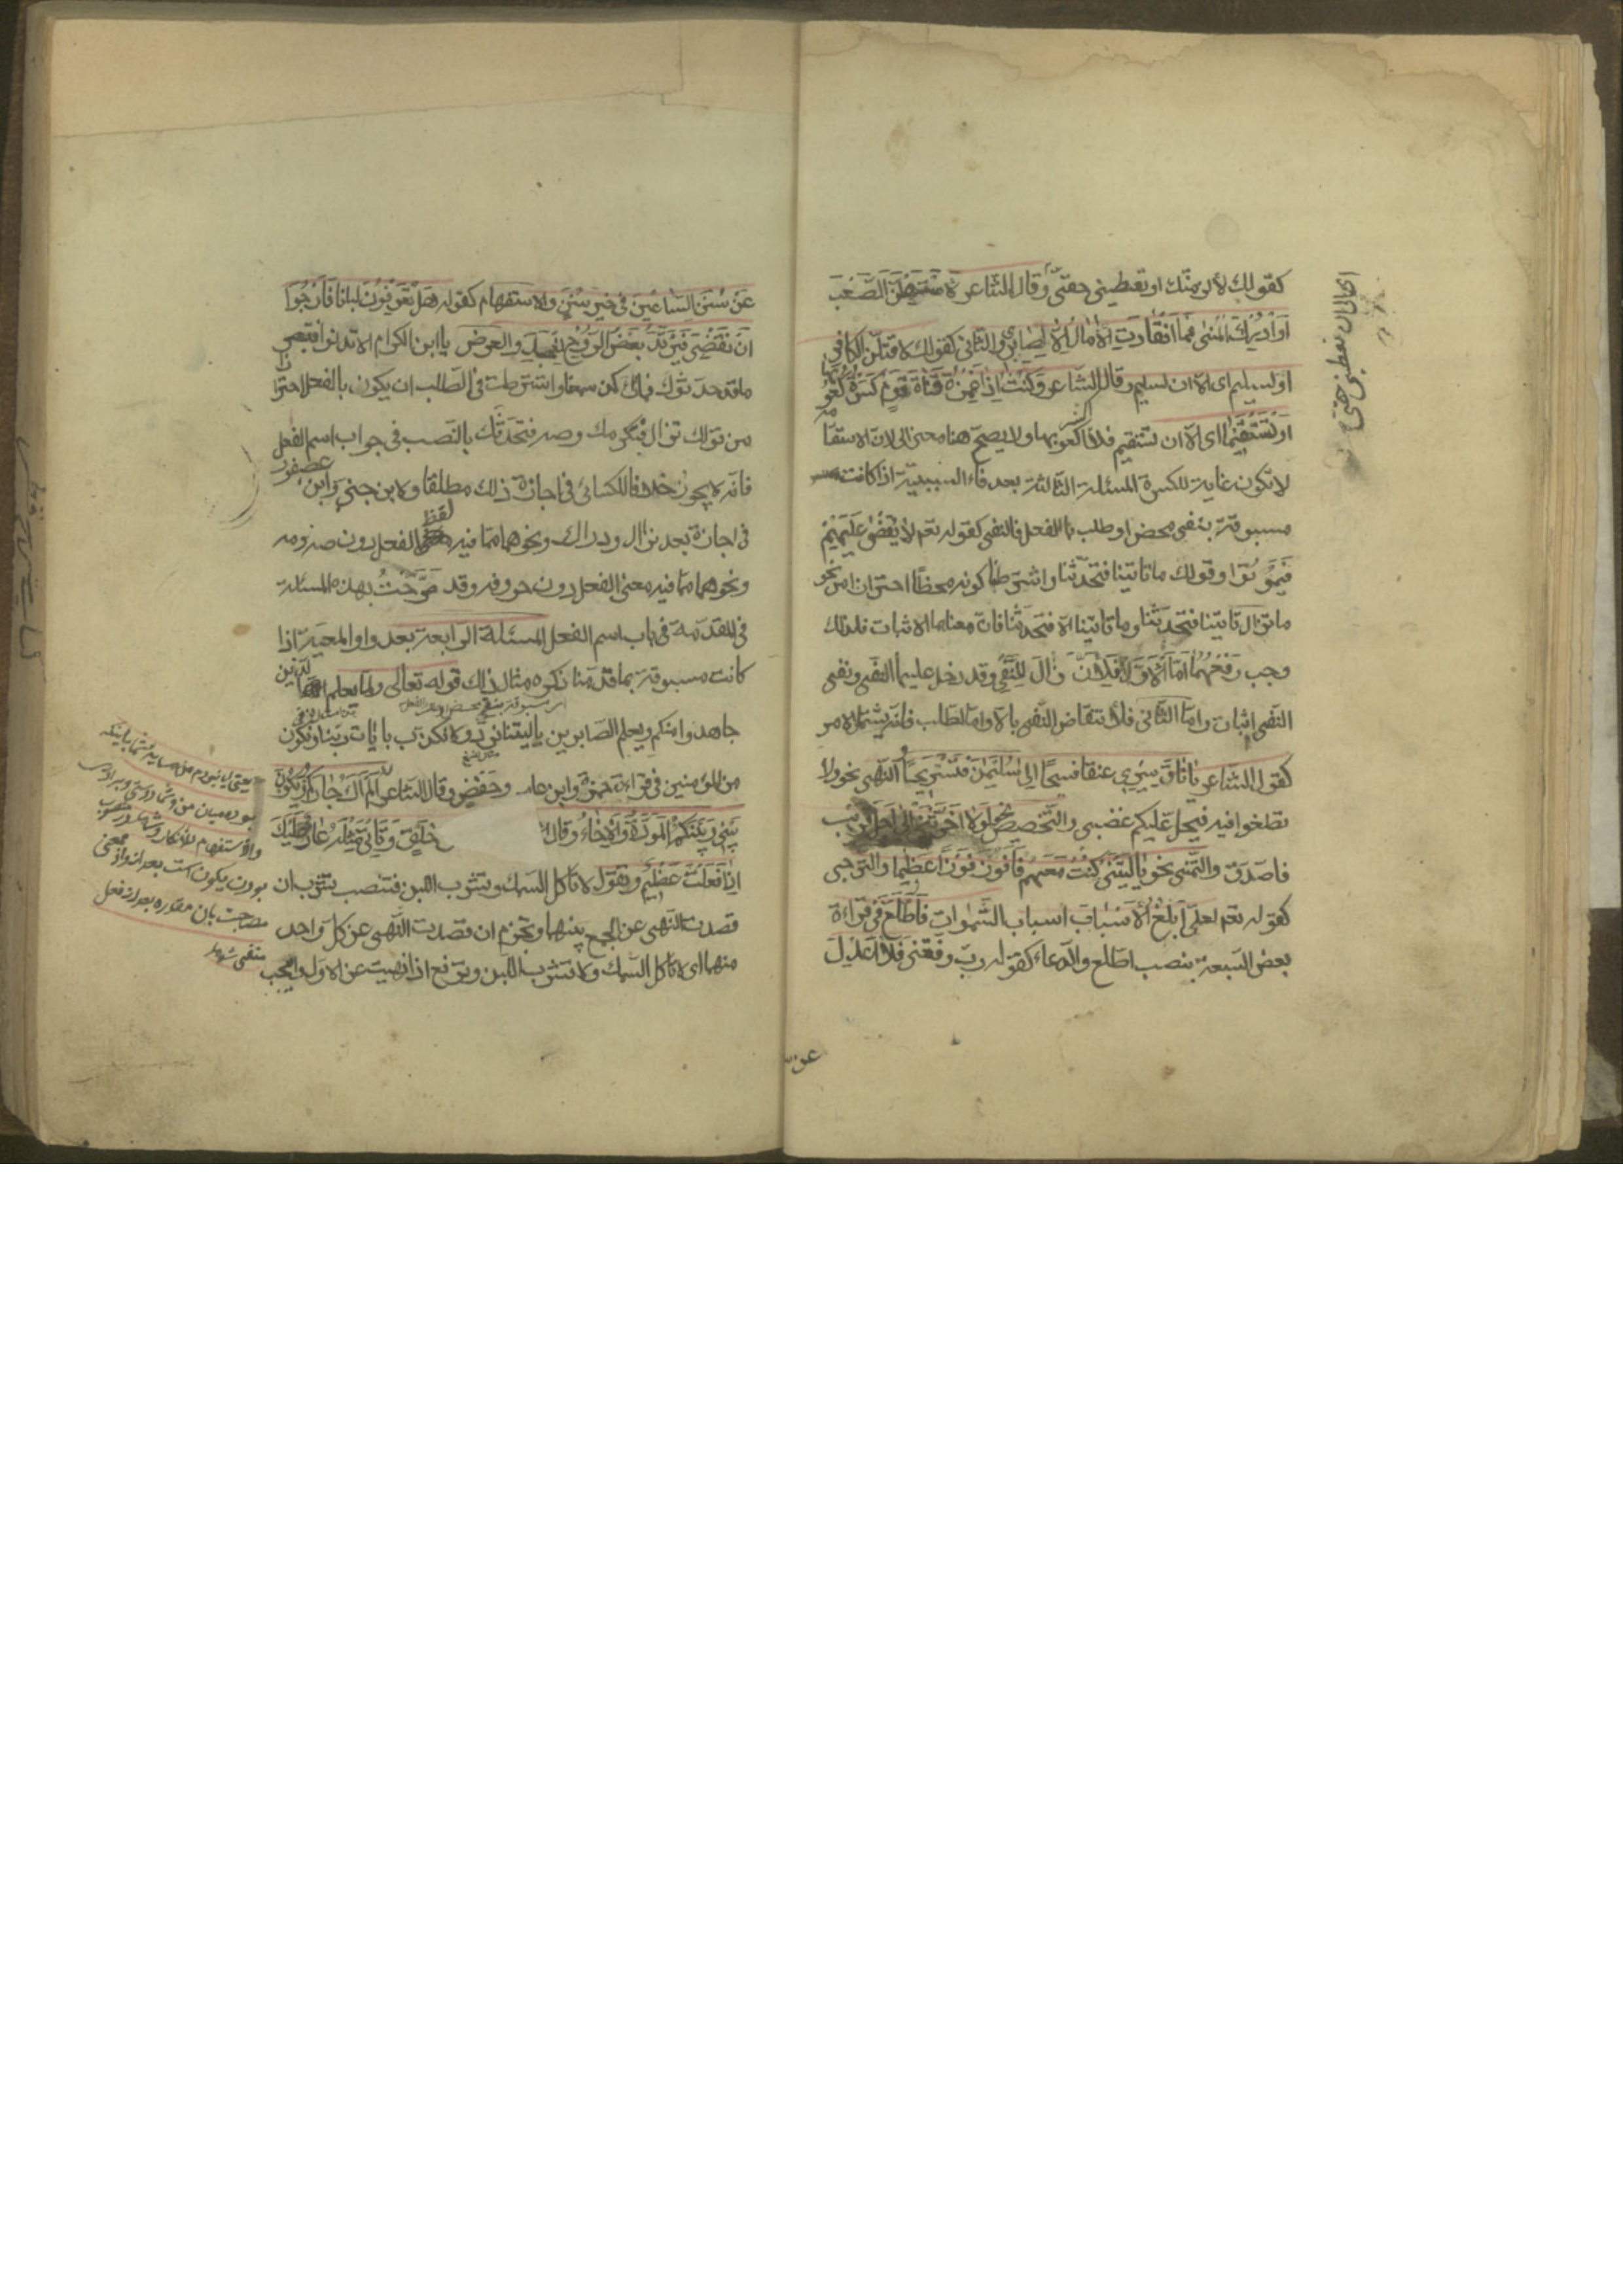 كقولك لألزمنّك او تعطيني حقّي وقال الشاعر لأستسهلنّ الصّعب
او ادرك المنى فما انقادت الآمال الا لصابر والثاني كقولك لاقتلنّ الكافر
او ليسلم اى الا ان يسلم وقال الشاعر وكنت اذا غمزت قناة قوم كسرت كعوبها
او تستقيما اى الا ان تستقيم فلا اكسر كعوبها ولا يصحّ هنا معنى الى لان الاستقامة
لا تكون غاية للكسر المسئلة الثالثة بعد فاء السببية اذا كانت
مسبوقة بنفى محض او طلب بالفعل فالنفى كقوله تعم لا يقضى عليهم
فيموتوا وقولك ما تاتينا فتحدّثنا واشترطنا كونه محظًا احترازا من نحو
ما تزال تاتينا فتحدثنا وما تاتينا الا فتحدثنا فان معناهما الاثبات فلذلك
وجب رفعهما امّا الاوّل فلانّ زال للنفى وقد دخل عليها النفى ونفى
النفى اثبات وامّا الثانى فلانتقاض النفى بالا وامّا الطلب فانه يشتمل الامر
كقول الشاعر يا ناق سيرى عنقا فسيحًا الى سليمن فنستريحا والنهى نحو ولا
تطغوا فيه فيحلّ عليكم غضبى والتّخصيص نحو لولا اخّرتنى الى اجل قريب
فاصّدّق والتمنى نحو ياليتنى كنت معهم فافوز فوزًا عظيما والترجى
كقوله تعم لعلّى ابلغ الاسباب اسباب السّموات فاطّلع فى قراءة
بعض السبعة بنصب اطّلع والدعاء كقوله ربّ وفّقنى فلا اعدل
عن
عن سنن السّاعين فى خير سنن والاستفهام كقوله هل تعرفون لباناتى فارجوا
ان تقضى فيرتدّ بعض الرّوح للجسد والعرض يا ابن الكرام الا تدنوا فتبصر
ما قد حدثوك فما راء كمن سمعا واشترطت فى الطّلب ان يكون بالفعل احترازا
من قولك نزال فنكرمك وصه فنحدّثك بالنّصب فى جواب اسم الفعل
فانه لا يجوز خلافا للكسائى فى اجازة ذلك مطلقا ولابن جنى وابن عصفور
فى اجازة بعد نزال ودراك ونحوهما ممّا فيه لفظ الفعل دون صه ومه
ونحوهما ممّا فيه معنى الفعل دون حروفه وقد صرّحت بهذه المسئلة
فى المقدّمة فى باب اسم الفعل المسئلة الرابعة بعد واو المعيّة اذا
كانت مسبوقة بما قدّمنا ذكره مثال ذلك قوله تعالى ولمّا يعلم الله الّذين
جاهدوا منكم ويعلم الصّابرين ياليتنا نردّ ولا نكذّب بايات ربّنا ونكون
من المؤمنين فى قراءة حمزة وابن عامر وحفص وقال الشاعر الم اك جاركم ويكون
بينى وبينكم المودّة والاخاء وقال لا تنه عن خلق وتأتى مثله عار عليك
اذا فعلت عظيم وتقول لا تاكل السمك وتشرب اللبن فتنصب تشرب ان
قصدت النّهى عن الجمع بينهما وتجزم ان قصدت النّهى عن كل واحد
منهما اى لا تاكل السّمك ولا تشرب اللبن وترفع اذا نهيت عن الاول وابحت